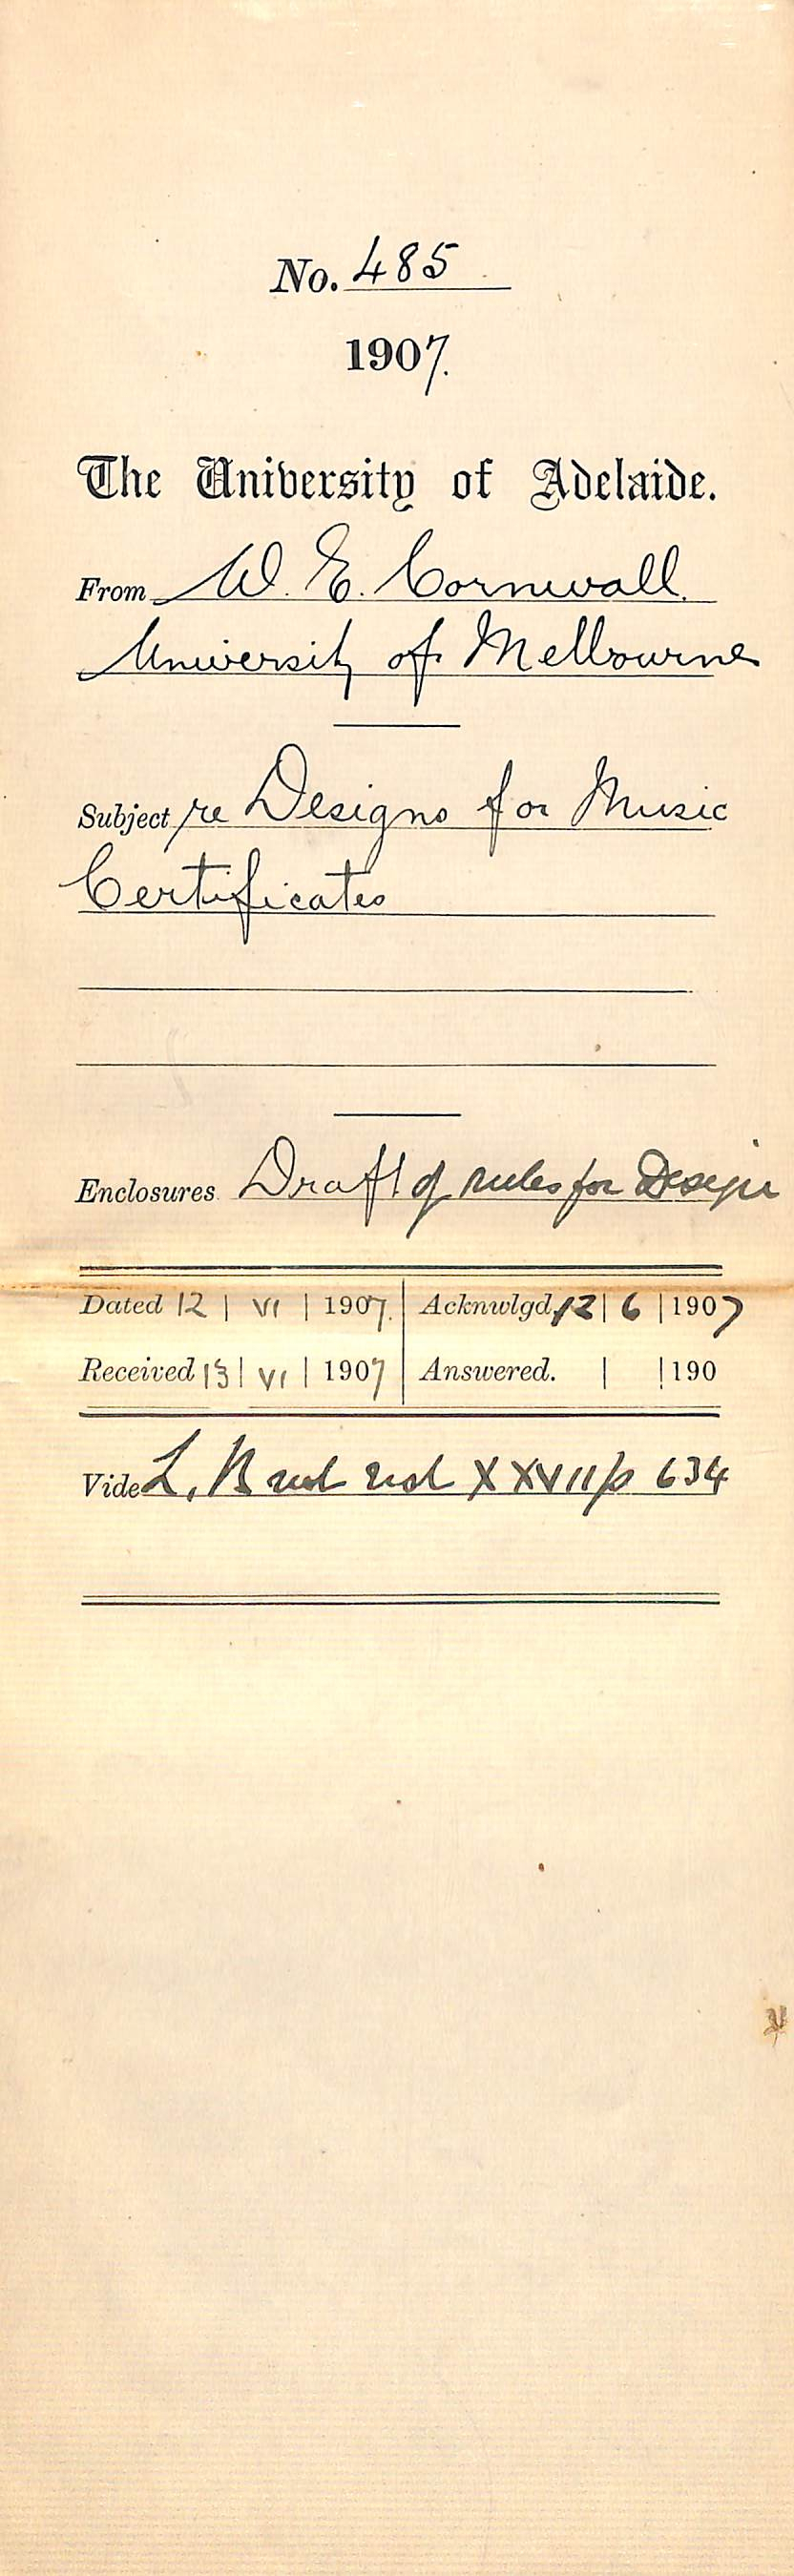 No. 485
1907.
The University of Adelaide.
From W. E. Cornwall.
University of Melbourne
Subject re Designs for Music
Certificates
Enclosures Draft of rules for Design
Dated 12 | VI | 1907. Acknwlgd. 12 | 6 | 1907
Received 13 | VI | 1907 Answered. | | 190
Vide L. B vol XXVII p 634